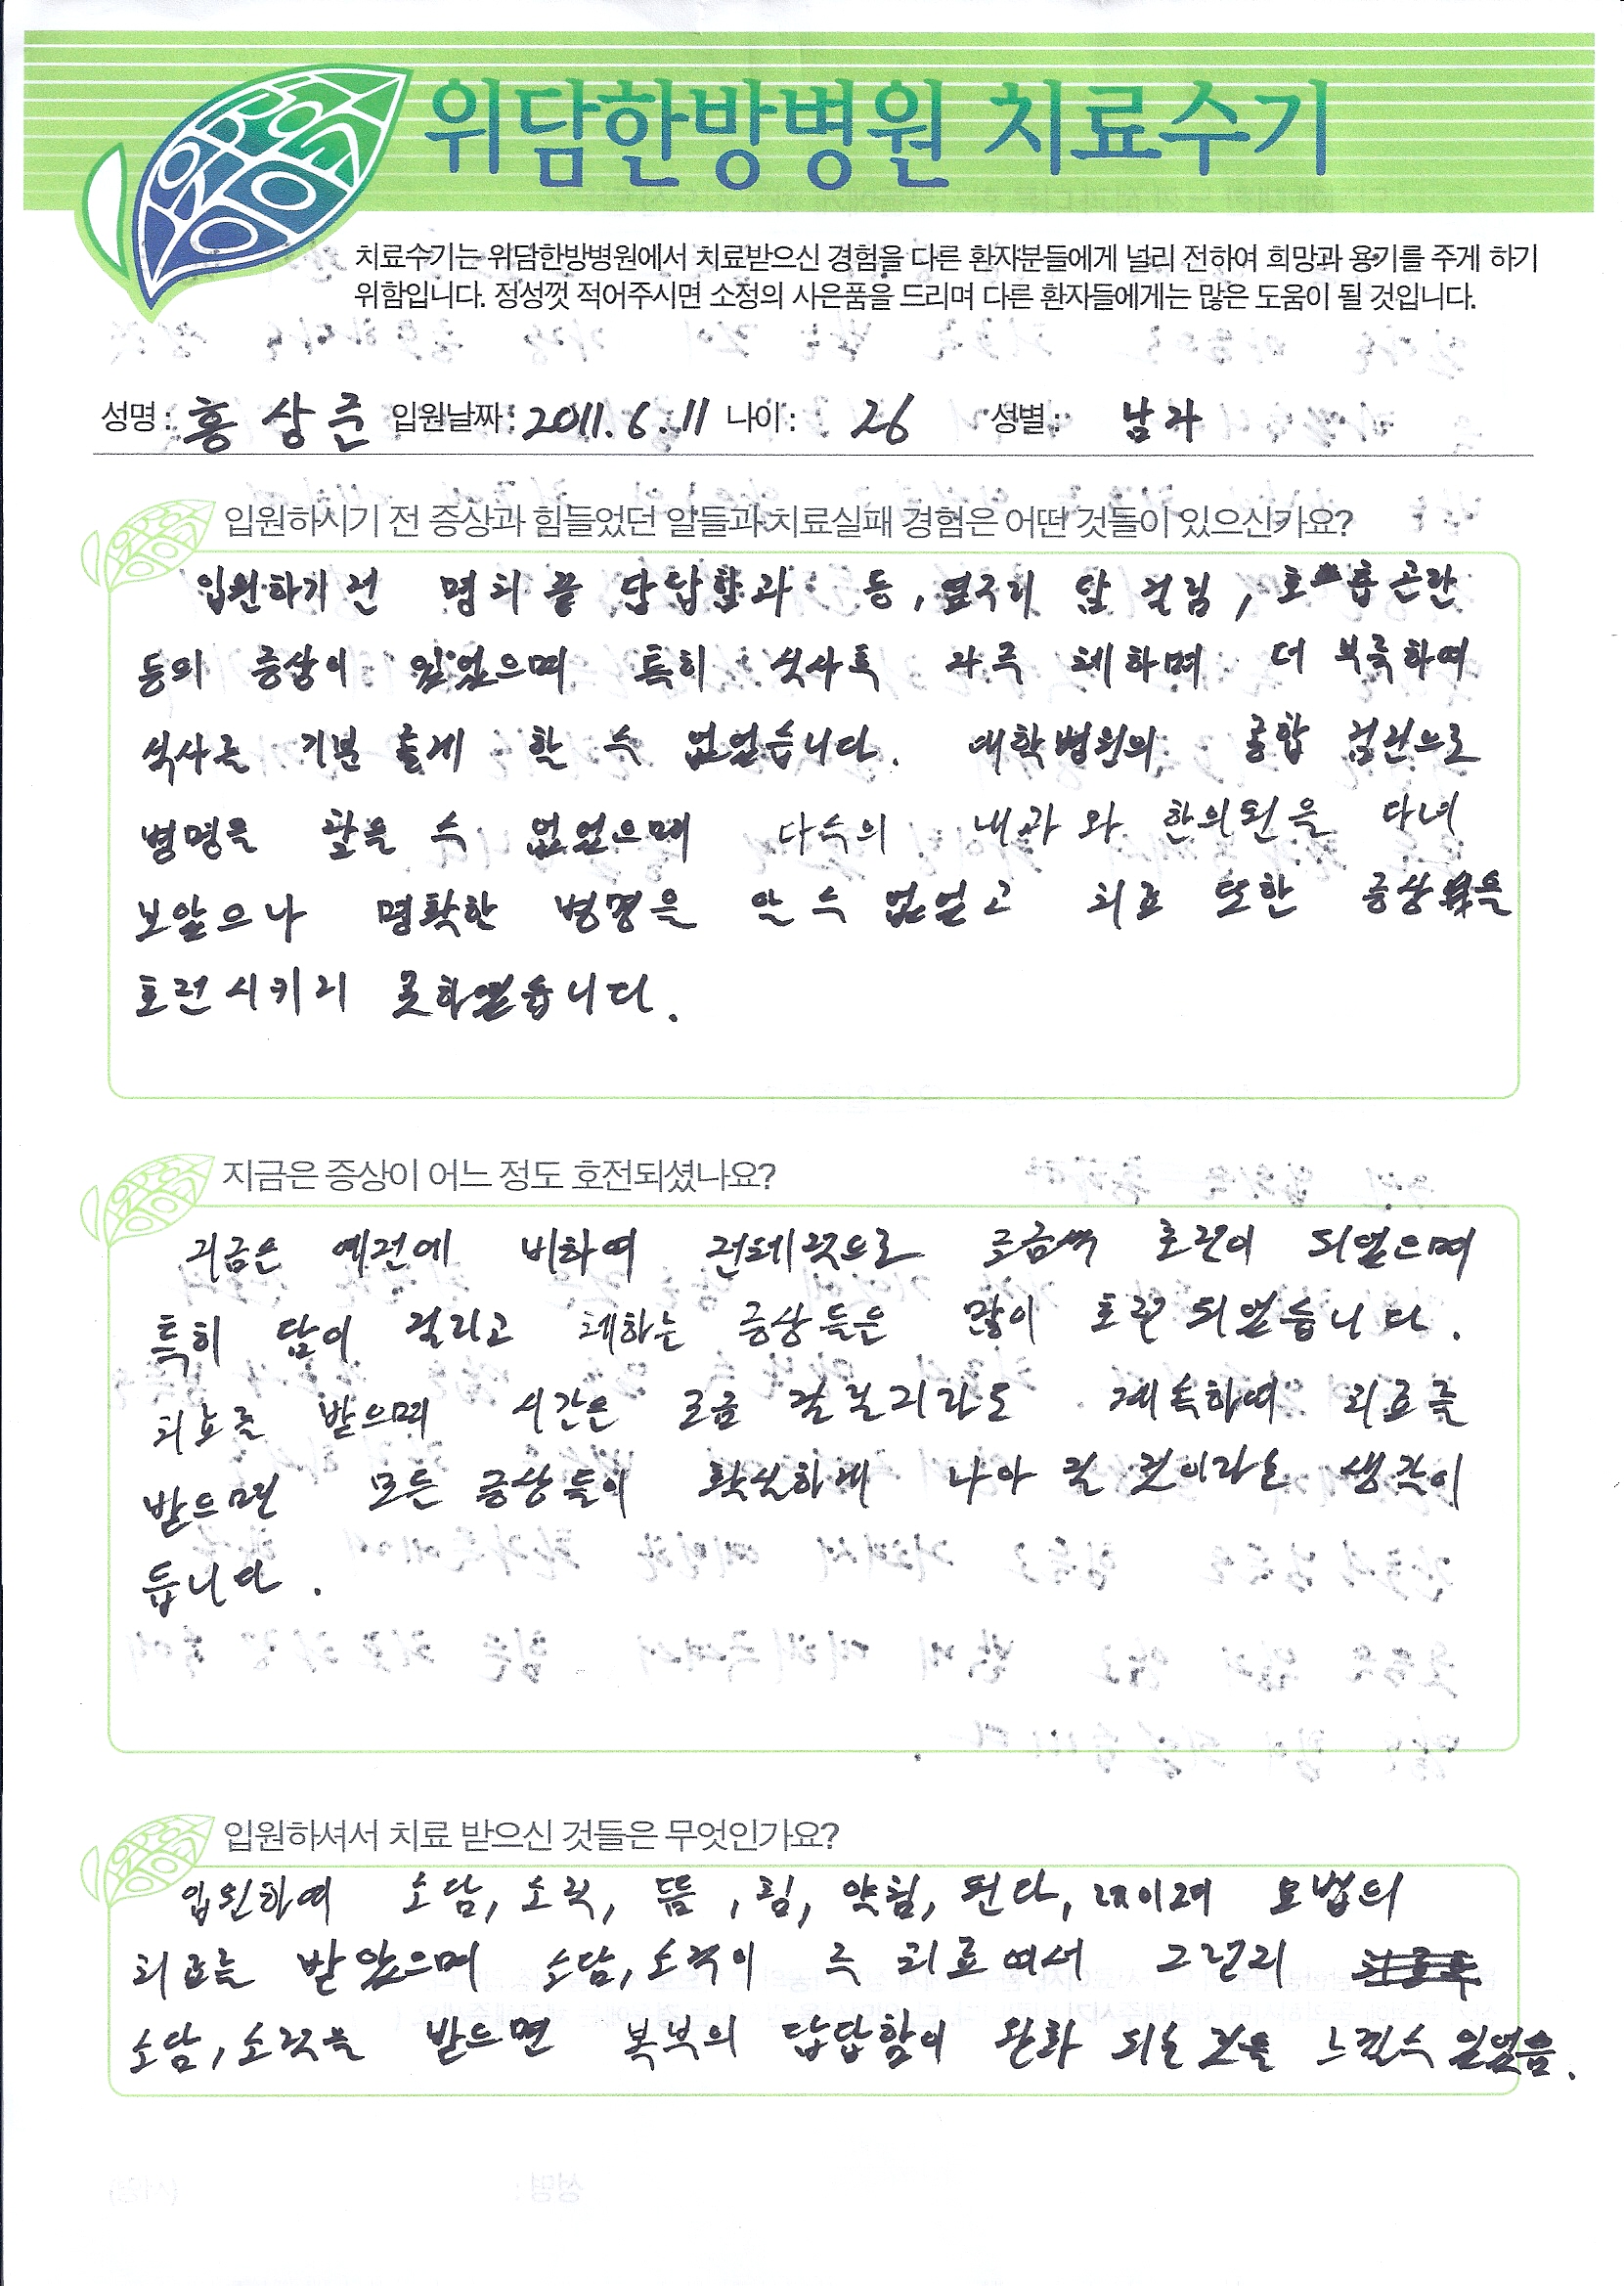 위담한방병원 치료수기
치료수기는 위담한방병원에서 치료받으신 경험을 다른 환자분들에게 널리 전하여 희망과 용기를 주게 하기
위함입니다. 정성껏 적어주시면 소정의 사은품을 드리며 다른 환자들에게는 많은 도움이 될 것입니다.
성명 : 홍상준 입원날짜 : 2011.6.11 나이 : 26 성별 : 남자
입원하시기 전 증상과 힘들었던 알들과 치료실패 경험은 어떤 것들이 있으신가요?
입원하기 전 명치 끝 답답함과 등, 옆구리 담 걸림, 호흡곤란
등의 증상이 있었으며 특히 식사톡 자주 체하며 더부룩하여
식사를 기분 좋게 할 수 없었습니다. 대학병원의 종합 검진으로
병명을 찾을 수 없었으며 다수의 내과와 한의원을 다녀
보았으나 명확한 병명을 알 수 없었고 치료 또한 증상을
호전시키지 못하였습니다.
지금은 증상이 어느 정도 호전되셨나요?
지금은 예전에 비하여 전체적으로 조금씩 호전이 되었으며
특히 담이 걸리고 체하는 증상들은 많이 호전 되었습니다.
치료를 받으며 시간은 조금 걸릴지라도 계속하여 치료를
받으면 모든 증상들이 확실하게 나아 질 것이라는 생각이
듭니다.
입원하셔서 치료 받으신 것들은 무엇인가요?
입원하여 소담, 소적, 뜸, 침, 약침, 왼다, 테이퍼 요법의
치료를 받았으며 소담, 소적이 주 치료여서 그런지
소담, 소적을 받으면 복부의 답답함이 완화 되는 것을 느낄수 있었음.